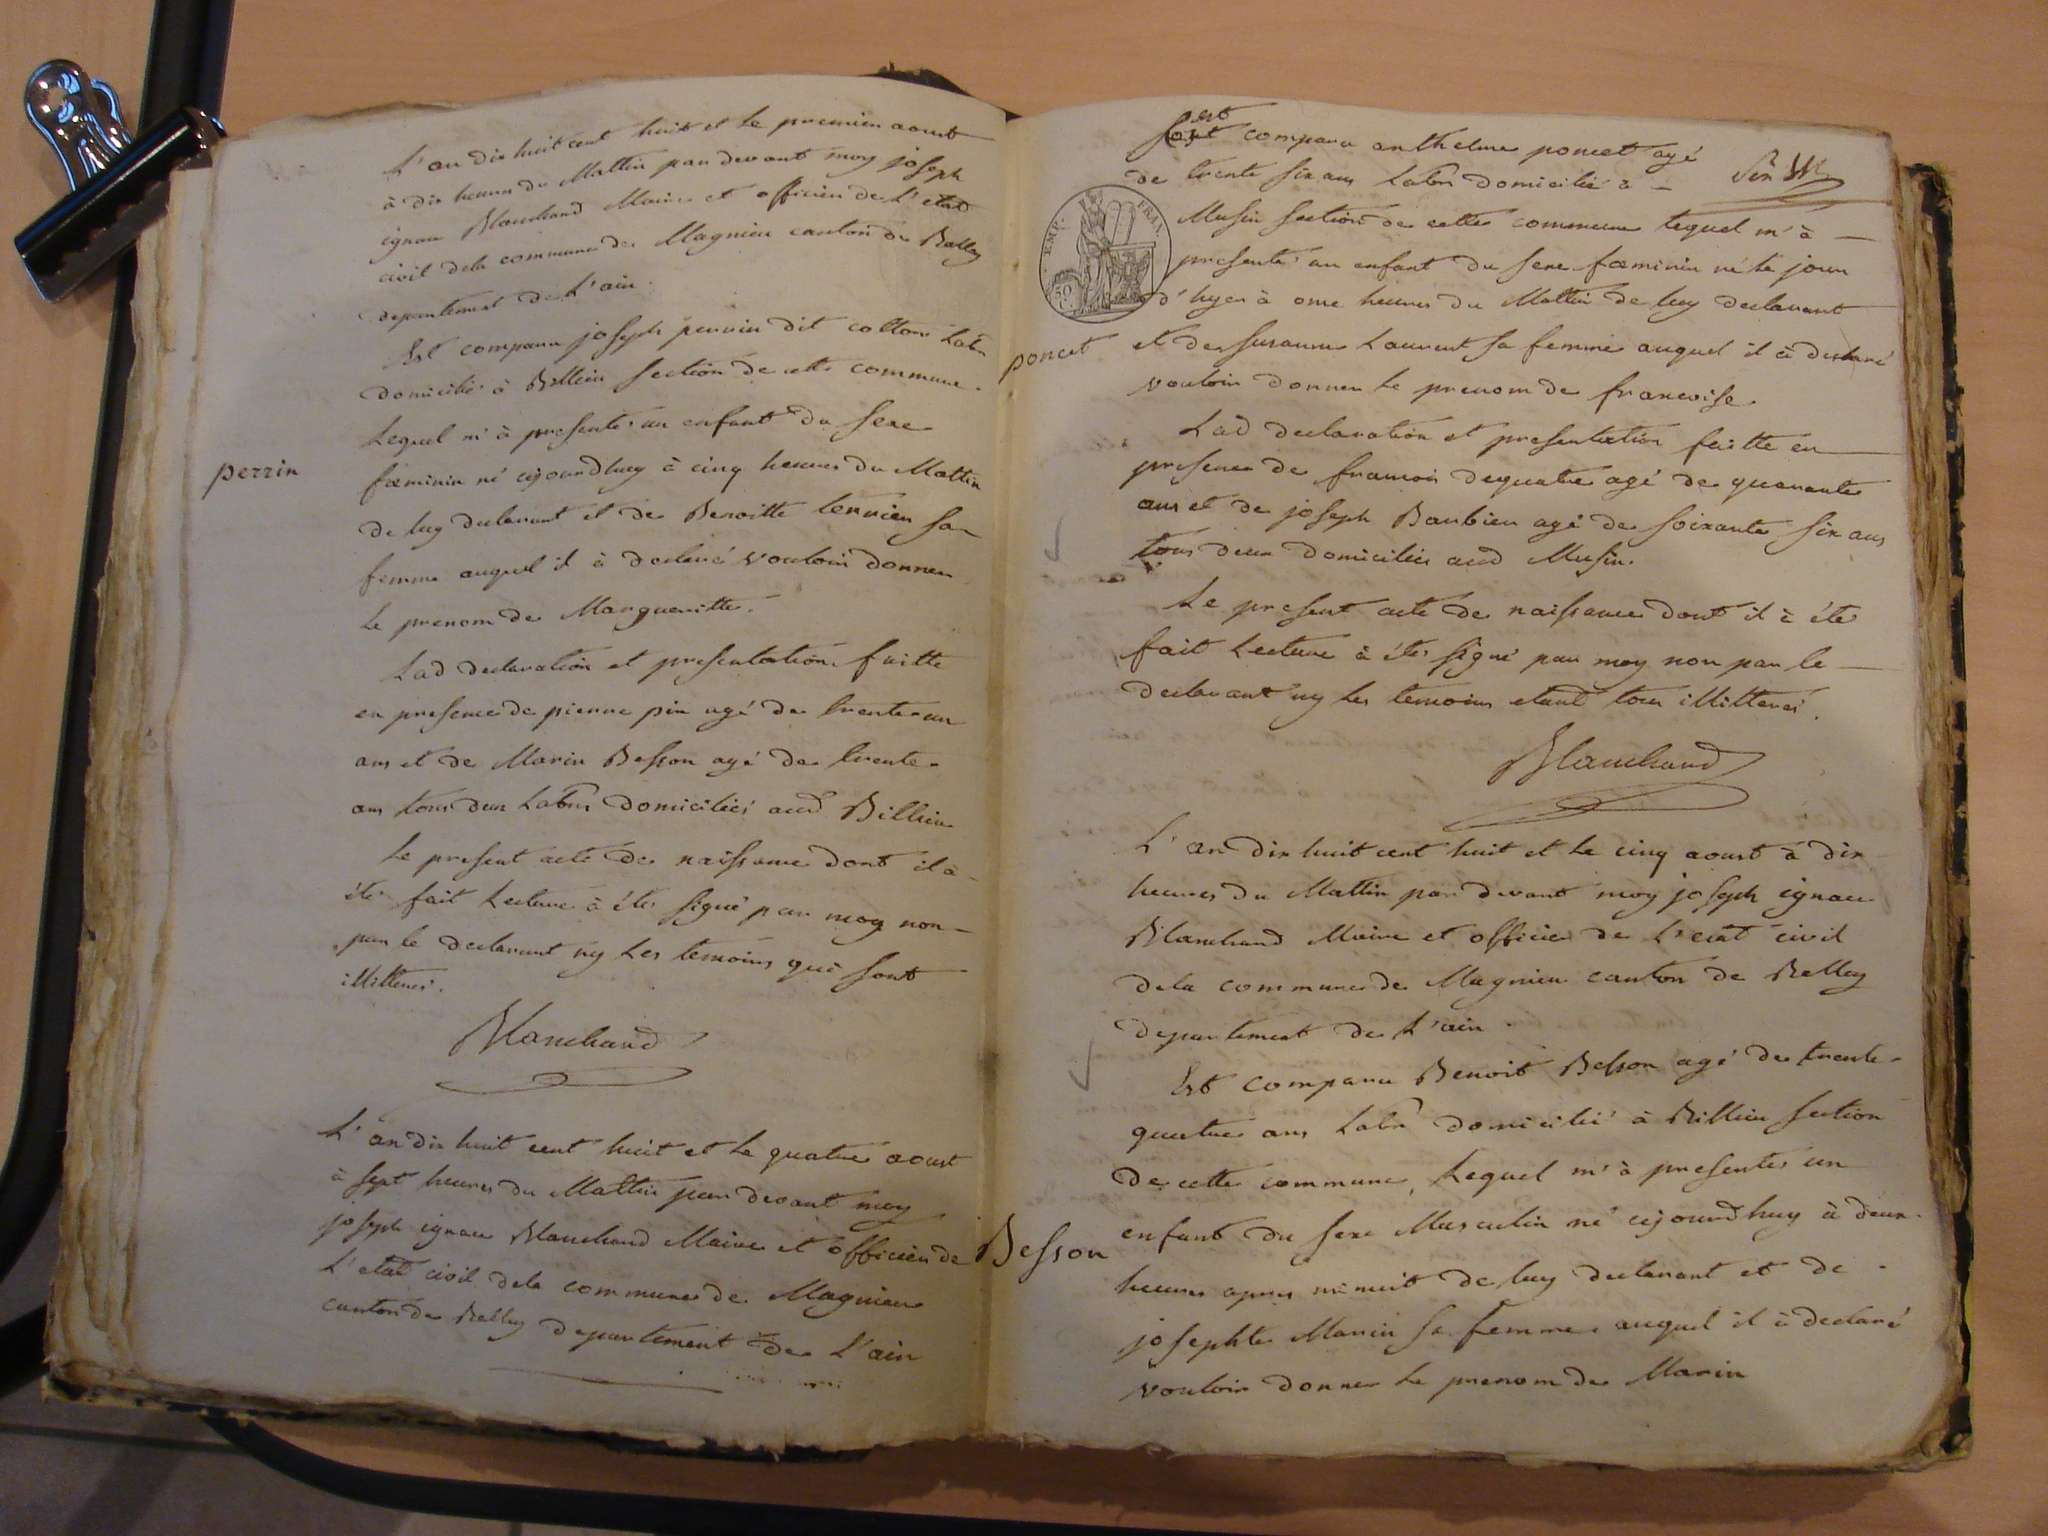 L'an dix huit cent huit et le premier aoust
à dix heures du Mattin par devant moy joseph
ignace Blanchard Maire et officier de L'etat
civil dela commune de Magnieu canton de Belley
departement de L'ain.
Est comparu joseph perrin dit colton Labr
domicilié à Billieu section de cette commune.
Lequel m'à presenté un enfant du sexe
perrin
fœminin né cejourdhuy à cinq heures du Mattin
de luy declarant et de Benoitte terrier sa
femme auquel il à declaré vouloir donner
le prenom de Margueritte.
Lad declaration et presentation faitte
en presence de pierre pin agé de trente un
ans et de Marin Besson agé de trente
ans tous deux Labrs domiciliés aud Billieu
Le present acte de naissance dont il à
été fait Lecture à été signé par moy non
par le declarant ny Les temoins qui sont
illitterés.
Blanchard
L'an dix huit cent huit et le quatre aoust
à sept heures du Mattin par devant moy
joseph ignace Blanchard Maire et officier de
L'etat civil dela commune de Magnieu
canton de Belley departement de L'ain
est
comparu anthelme poncet agé
de trente six ans Labr domicilié à
Musin section de cette commune lequel m'à
EMP. FRAN.
50
presenté un enfant du sexe fœminin né le jour
d'hyer à onze heures du Mattin de luy declarant
poncet
et de susanne Laurent sa femme auquel il à declaré
vouloir donner le prenom de francoise
Lad declaration et presentation faitte en
presence de francois dequatre agé de quarante
ans et de joseph Barbier agé de soixante six ans
tous deux domiciliés aud Musin.
Le present acte de naissance dont il à été
fait Lecture à été signé par moy non par le
declarant ny Les temoins etant tous illitterés.
Blanchard
L'an dix huit cent huit et le cinq aoust à dix
heures du Mattin par devant moy joseph ignace
Blanchard Maire et officier de L'etat civil
dela commune de Magnieu canton de Belley
departement de L'ain.
Est comparu Benoit Besson agé de trente
quatre ans Labr domicilié à Billieu section
de cette commune, Lequel m'à presenté un
enfant du sexe Masculin né cejourdhuy à deux
Besson
heures apres minuit de luy declarant et de
josephte Marin sa femme auquel il à declaré
vouloir donner le prenom de Marin